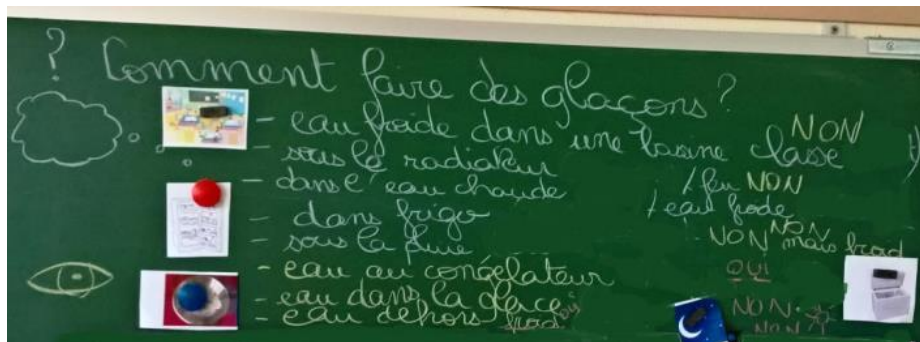 ? Comment faire des glaçons ?
- eau froide dans une bassine classe NON
- sous le radiateur
- dans l'eau chaude / feu NON
- dans frigo / eau froide
- sous la pluie NON NON mais froid
- eau au congélateur OUI
- eau dans la glace NON
- eau dehors froid oui NON